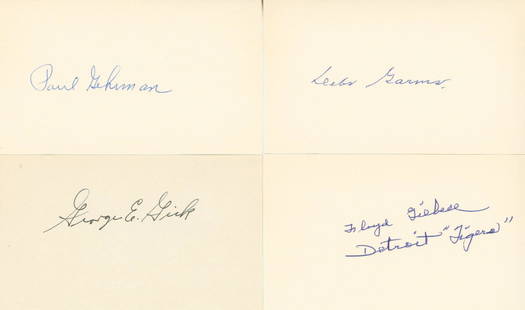 Paul Gehrman
Debs Garms.
George E. Gick
Floyd Giebell
Detroit "Tigers"